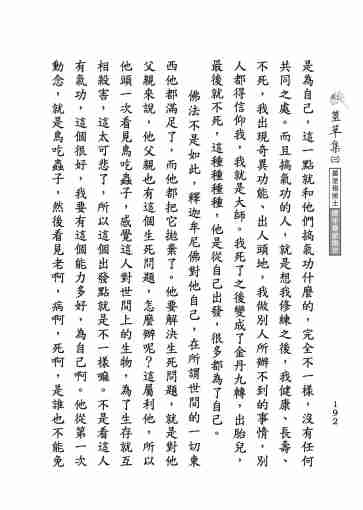 薑草集㈡
192
是為自己，這一點就和他們搞氣功什麼的，完全不一樣，沒有任何
共同之處。而且搞氣功的人，就是想我修練之後，我健康、長壽、
不死，我出現奇異功能、出人頭地，我做別人所辦不到的事情，別
人都得信仰我，我就是大師。我死了之後變成了金丹九轉，出胎兒，
最後就不死，這種種種種，他是從自己出發，很多都為了自己。
佛法不是如此，釋迦牟尼佛對他自己，在所謂世間的一切東
西他都滿足了，而他都把它拋棄了。他要解決生死問題，就是對他
父親來說，他父親也有這個生死問題，怎麼辦呢？這屬利他，所以
他頭一次看見鳥吃蟲子，感覺這人對世間上的生物，為了生存就互
相殺害，這太可悲了，所以這個出發點就是不一樣嘛。不是看這人
有氣功，這個很好，我要有這個能力多好，為自己啊。他從第一次
動念，就是鳥吃蟲子，然後看見老啊，病啊，死啊，是誰也不能免